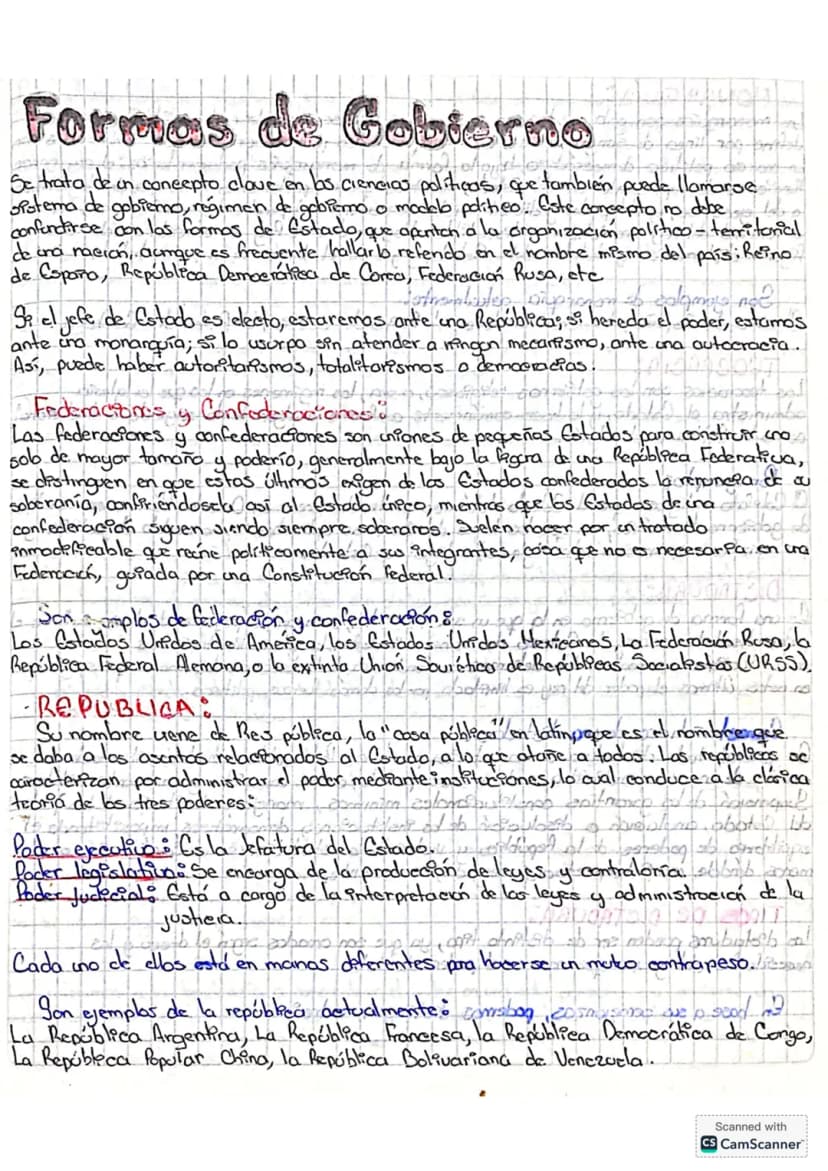 Formas de Gobierno
Se trata de un concepto clave en las ciencias políticas, que también puede llamarse
sistema de gobierno, régimen de gobierno o modelo político. Este concepto no debe
confundirse con las formas de Estado, que apuntan a la organización político-territorial
de una nación, aunque es frecuente hallarlo referido en el nombre mismo del país: Reino
de España, República Democrática de Corea, Federación Rusa, etc
Si el jefe de Estado es electo, estaremos ante una República; si hereda el poder, estamos
ante una monarquía; si lo usurpa sin atender a ningún mecanismo, ante una autocracia.
Así, puede haber autoritarismos, totalitarismos o democracias.
Federaciones y Confederaciones:
Las federaciones y confederaciones son uniones de pequeños Estados para construir uno
solo de mayor tamaño y poderío, generalmente bajo la figura de una República Federativa,
se distinguen en que estas últimas exigen de los Estados confederados la renuncia de su
soberanía, confiriéndosela así al Estado único, mientras que los Estados de una
confederación siguen siendo siempre soberanos. Suelen nacer por un tratado
inmodificable que reúne políticamente a sus integrantes, cosa que no es necesaria en una
Federación, guiada por una Constitución Federal.
Son ejemplos de federación y confederación:
Los Estados Unidos de América, los Estados Unidos Mexicanos, La Federación Rusa, la
República Federal Alemana, o la extinta Unión Soviética de Repúblicas Socialistas (URSS).
- REPUBLICA:
Su nombre viene de Res pública, la "cosa pública" en latín, que es el nombre que
se daba a los asuntos relacionados al Estado, a lo que atañe a todos. Las repúblicas se
caracterizan por administrar el poder mediante instituciones, lo cual conduce a la clásica
teoría de los tres poderes:
Poder ejecutivo: Es la Jefatura del Estado.
Poder legislativo: Se encarga de la producción de leyes y contraloría.
Poder Judicial: Está a cargo de la interpretación de las leyes y administración de la
justicia.
Cada uno de ellos está en manos diferentes para hacerse un mutuo contrapeso.
Son ejemplos de la república actualmente:
La República Argentina, La República Francesa, la República Democrática de Congo,
La República Popular China, la República Bolivariana de Venezuela.
Scanned with
CS CamScanner